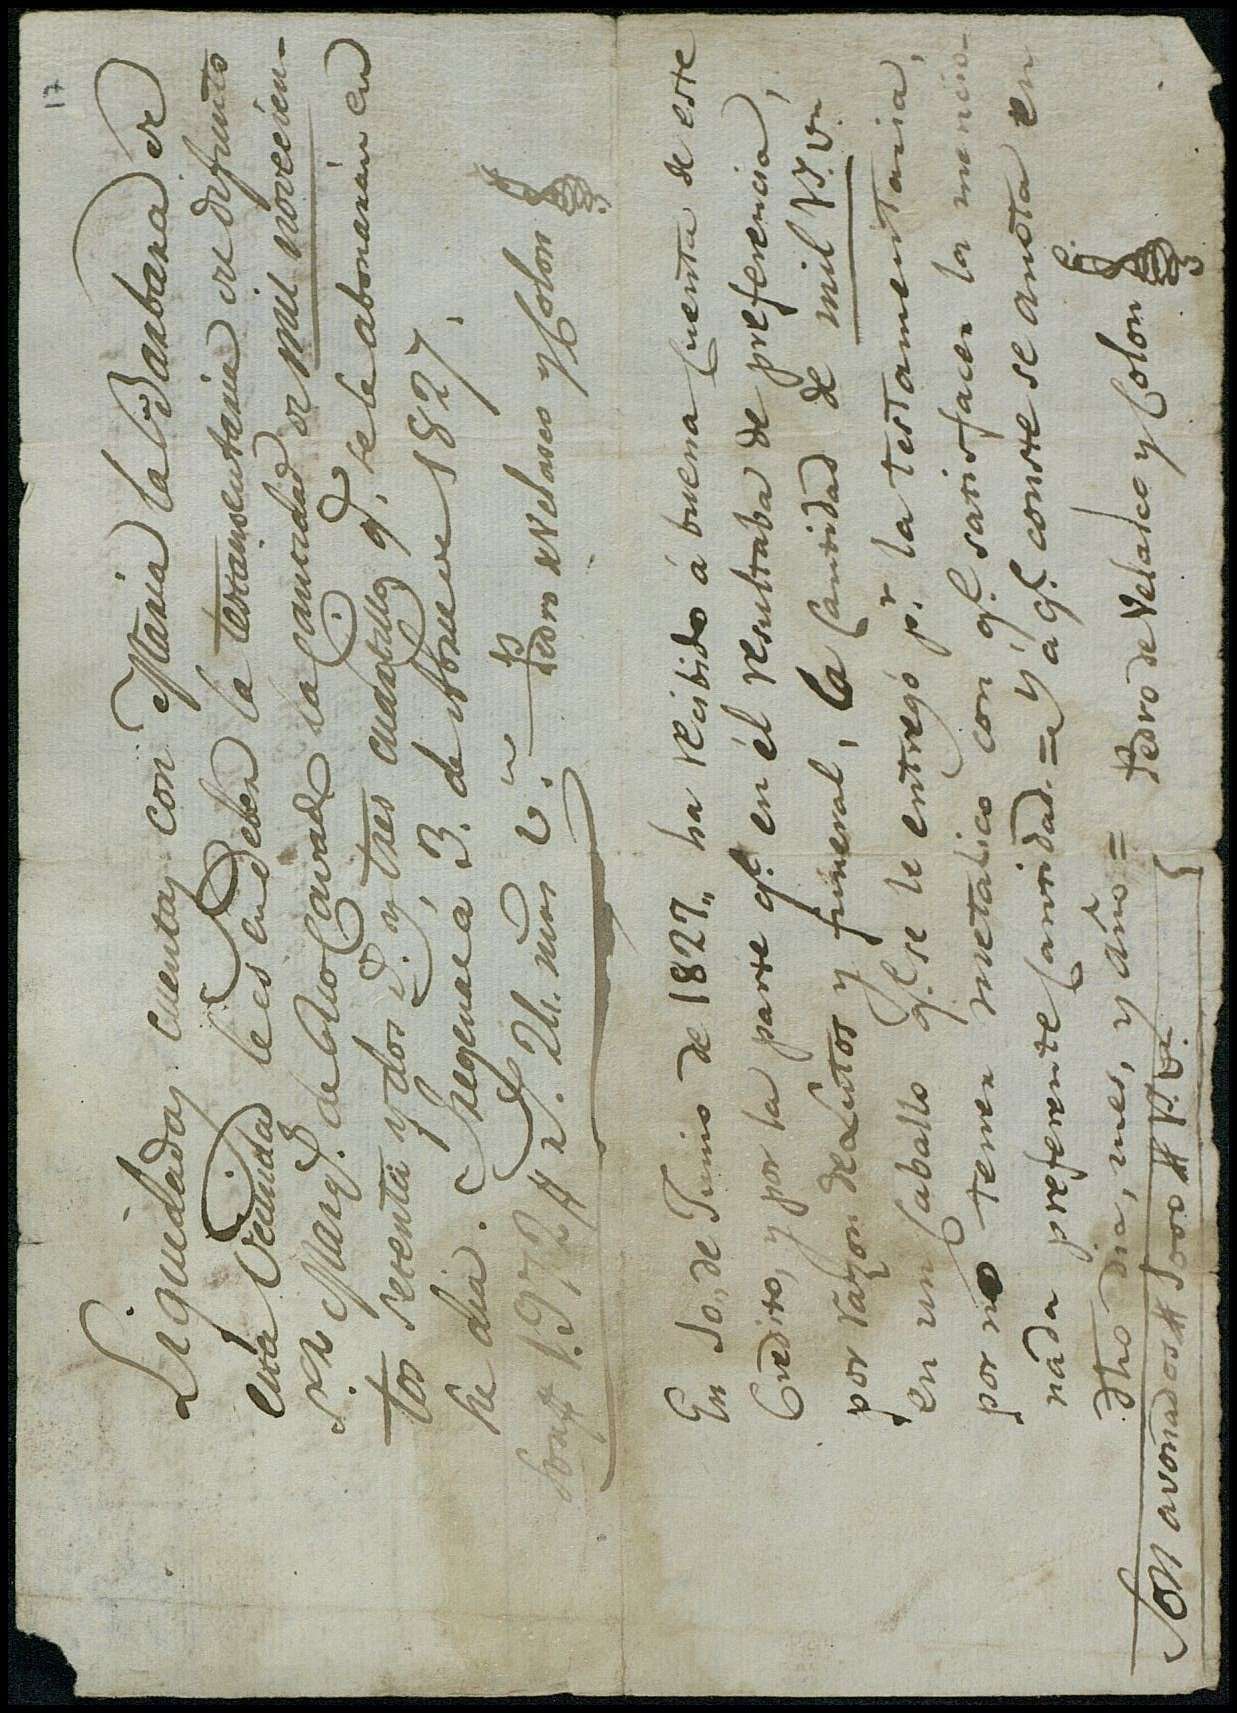 17
Liquidadas cuentas con Maria la Barbara de
esta Vecindad le es en deber la testamentaria del difunto
Sr. Marqs. de Rio Cavado la cantidad de mil novecien-
tos setenta y dos rs. y tres cuartillos qe. se le abonarán en
he dia. Requena á 3. de de 1827.
Son # 1.972 # rs. 24. mrs. vn.
Pedro de Velasco y Colon
En 10,, de Junio de 1827,, ha recibido á buena cuenta de este
Credito, y por la parte qe. en él resultaba de preferencia,
por razon de Lutos y funeral, la Cantidad de mil rs. vn.
en un Caballo qe. se le entregó pr. la testamentaria,
por no tener metalico con qe. satisfacer la mencio-
nada preferente Cantidad = Y á qe. conste se anota en
dho dia, mes, y año = Pedro de Velasco y Colon
Son avonados # 1000 # rs. vn.